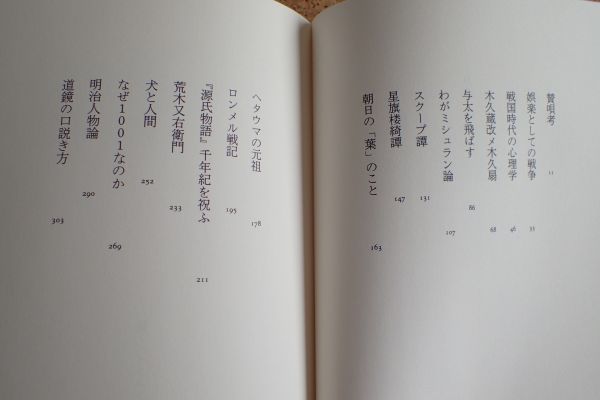 賛唄考 11
娯楽としての戦争 33
戦国時代の心理学 46
木久蔵改メ木久扇 68
与太を飛ばす 86
わがミシュラン論 107
スクープ譚 131
星旗楼綺譚 147
朝日の「葉」のこと 163
ヘタウマの元祖 178
ロンメル戦記 195
『源氏物語』千年紀を祝ふ 211
荒木又右衛門 233
犬と人間 252
なぜ1001なのか 269
明治人物論 290
道鏡の口説き方 303